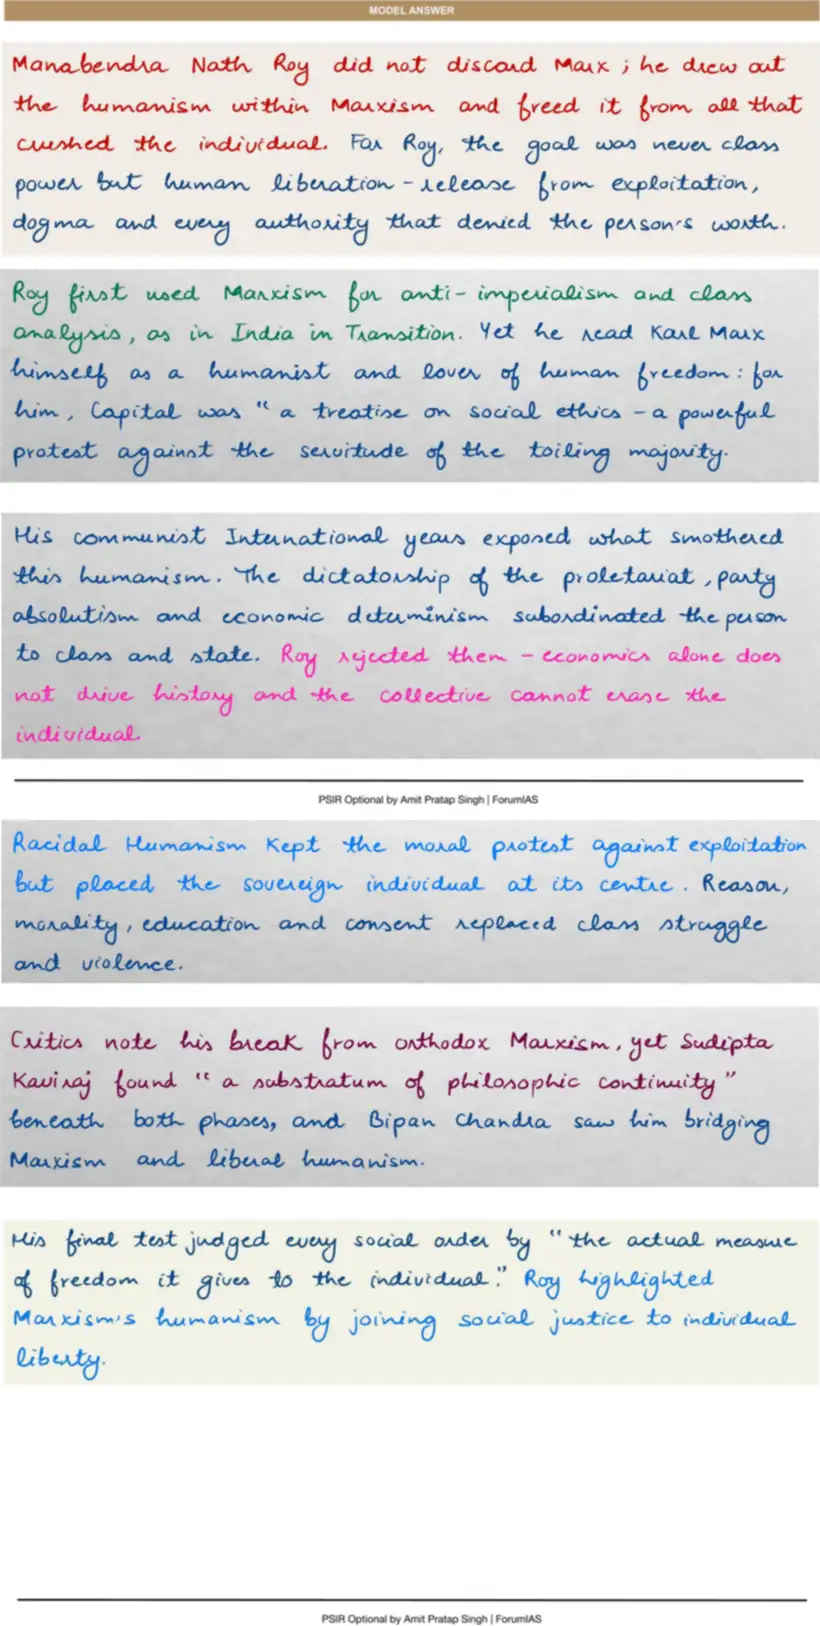 MODEL ANSWER
Manabendra Nath Roy did not discard Marx ; he drew out
the humanism within Marxism and freed it from all that
crushed the individual. For Roy, the goal was never class
power but human liberation - release from exploitation,
dogma and every authority that denied the person's worth.
Roy first used Marxism for anti-imperialism and class
analysis, as in India in Transition. Yet he read Karl Marx
himself as a humanist and lover of human freedom : for
him, Capital was " a treatise on social ethics - a powerful
protest against the servitude of the toiling majority.
His communist International years exposed what smothered
this humanism. The dictatorship of the proletariat, party
absolutism and economic determinism subordinated the person
to class and state. Roy rejected them - economics alone does
not drive history and the collective cannot erase the
individual.
PSIR Optional by Amit Pratap Singh | ForumIAS
Racidal Humanism Kept the moral protest against exploitation
but placed the sovereign individual at its centre. Reason,
morality, education and consent replaced class struggle
and violence.
Critics note his break from orthodox Marxism, yet Sudipta
Kaviraj found " a substratum of philosophic continuity"
beneath both phases, and Bipan Chandra saw him bridging
Marxism and liberal humanism.
His final test judged every social order by "the actual measure
of freedom it gives to the individual." Roy highlighted
Marxism's humanism by joining social justice to individual
liberty.
PSIR Optional by Amit Pratap Singh | ForumIAS